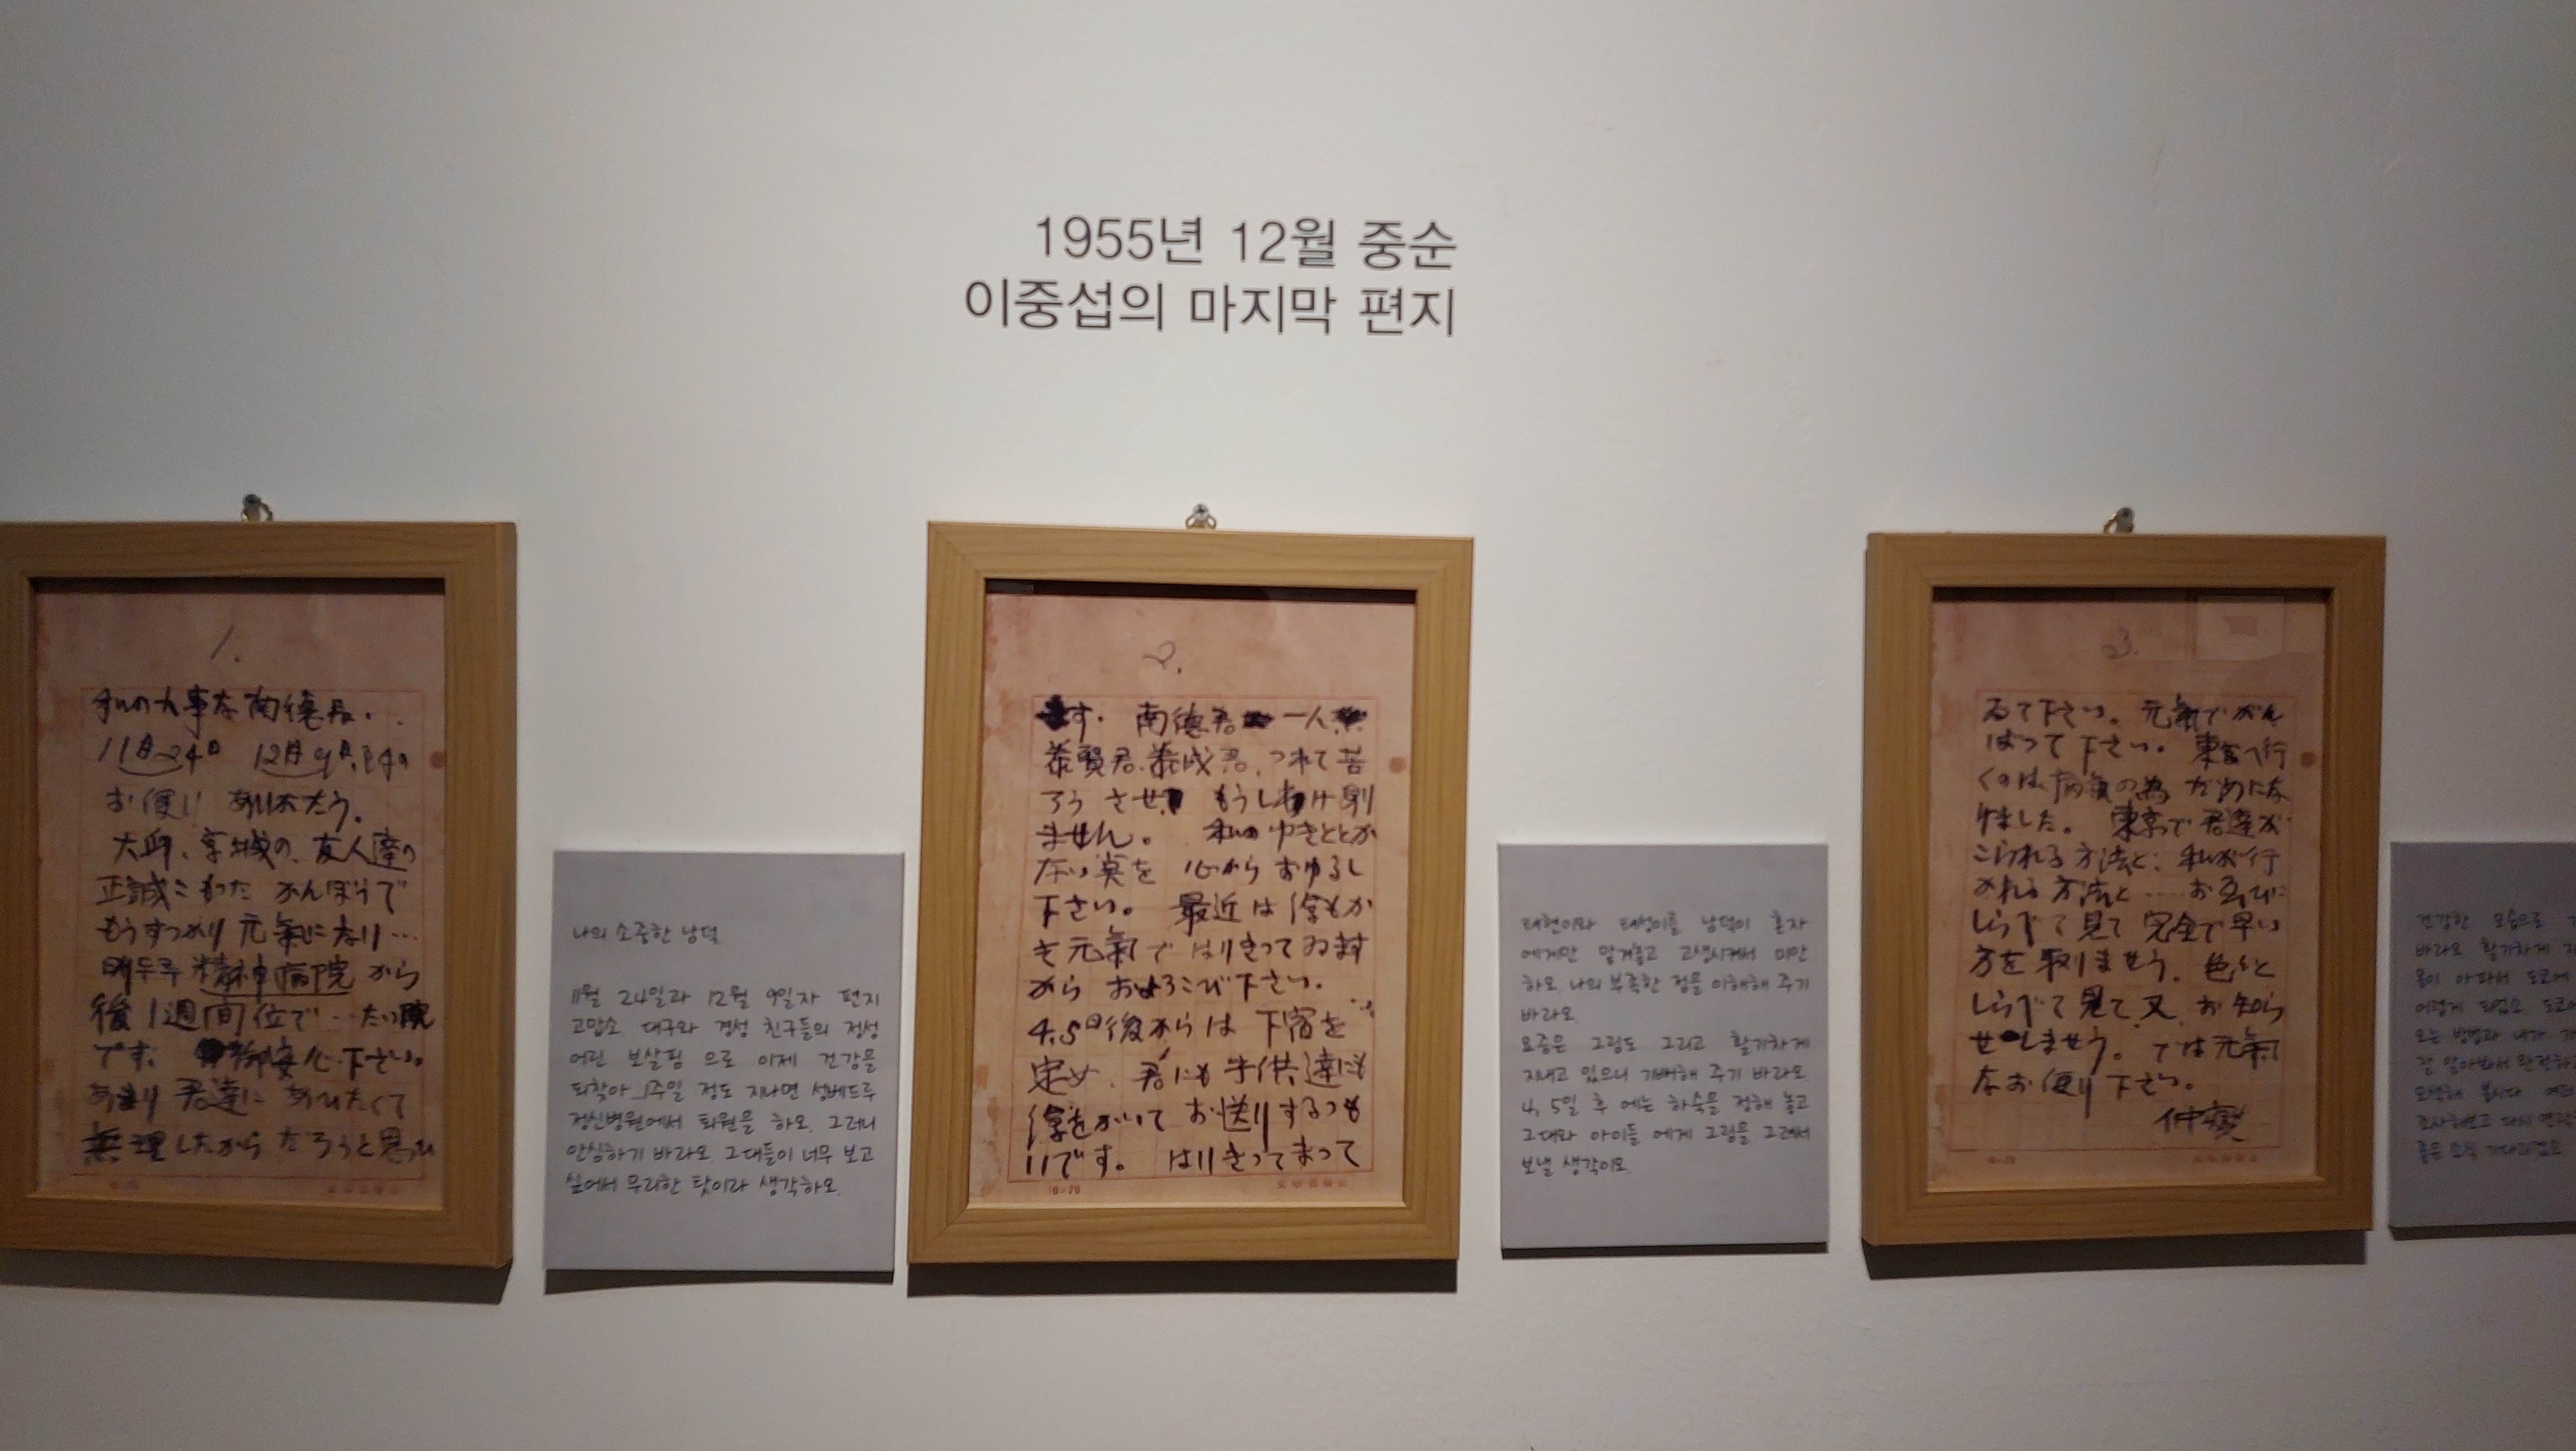 1955년 12월 중순
이중섭의 마지막 편지
1.
私の大事な南徳君・・
11月24日 12月9日
お便り ありがたう。
大邱、京城の、友人達の
正誠こもった かんぼうで
もうすっかり 元氣になり…
精神病院 から
後1週間位で…たい院
です。 御安心下さい。
あまり 君達に あひたくて
無理したからだろうと思ひ
나의 소중한 남덕
11월 24일과 12월 9일자 편지
고맙소. 대구와 경성 친구들의 정성
어린 보살핌 으로 이제 건강을
되찾아 1주일 정도 지나면 성베드루
정신병원에서 퇴원을 하오. 그러니
안심하기 바라오. 그대들이 너무 보고
싶어서 무리한 탓이라 생각하오.
2.
ます。 南徳君 一人
泰賢君、泰成君、つれて苦
ろう させ もうしわけ有り
ません。 私の ゆきとどか
ない 実を 心から おゆるし
下さい。 最近は 繪もか
き元氣で はりきってゐます
から およろこび下さい。
4.5日後からは 下宿を
定め、君にも 子供達にも
繪をかいて お送りするつも
りです。 はりきってまって
태현이와 태성이를 남덕이 혼자
에게만 맡겨놓고 고생시켜서 미안
하오. 나의 부족한 점을 이해해 주기
바라오.
요즘은 그림도 그리고 활기차게
지내고 있으니 기뻐해 주기 바라오.
4, 5일 후 에는 하숙을 정해 놓고
그대와 아이들 에게 그림을 그려서
보낼 생각이오.
3.
ゐて下さい。 元氣でがん
ばって下さい。 東京へ行
くのは 病氣の為 だめにな
りました。 東京で 君達が
こられる 方法と、私が行
かれる 方法と……お互に
しらべて見て 完全で早い
方を取りませう。 色々と
しらべて見て、又、お知ら
せしませう。 では元氣
なお便り下さい。
仲燮
건강한 모습으로
바라오. 활기차게
몸이 아파서 도쿄에
어렵게 되었소.
오는 방법과 내가
잘 알아봐서 완전하고
조사해보고 다시 연락
좋은 소식 기다리겠소.